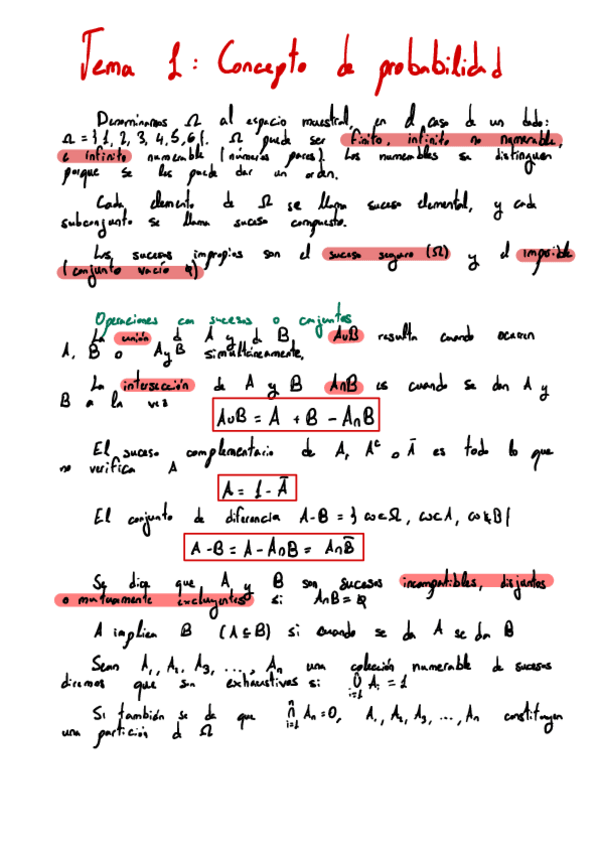 Tema 1: Concepto de probabilidad
Denominamos Ω al espacio muestral, en el caso de un dado:
Ω = {1, 2, 3, 4, 5, 6}. Ω puede ser finito, infinito no numerable,
e infinito numerable (números pares). Los numerables se distinguen
porque se les puede dar un orden.
Cada elemento de Ω se llama suceso elemental, y cada
subconjunto se llama suceso compuesto.
Los sucesos impropios son el suceso seguro (Ω) y el imposible
(conjunto vacío ∅)
Operaciones con sucesos o conjuntos
La unión d A y d B, A∪B resulta cuando ocurren
A, B o A y B simultáneamente,
La intersección de A y B A∩B es cuando se dan A y
B a la vez
A∪B = A + B - A∩B
El suceso complementario de A, Aᶜ o Ā es todo lo que
no verifica A
A = 1 - Ā
El conjunto de diferencia A-B = { ω∈Ω, ω∈A, ω∉B}
A - B = A - A∩B = A∩B̄
Se dice que A y B son sucesos incompatibles, disjuntos
o mutuamente excluyentes si A∩B = ∅
A implica B (A⊆B) si cuando se da A se da B
Sean A₁, A₂, A₃, ..., Aₙ una colección numerable de sucesos
diremos que son exhaustivos si: ⋃ⁿᵢ₌₁ Aᵢ = 1
Si también se da que ⋂ⁿᵢ₌₁ Aₙ = 0, A₁, A₂, A₃, ..., Aₙ constituyen
una partición d Ω